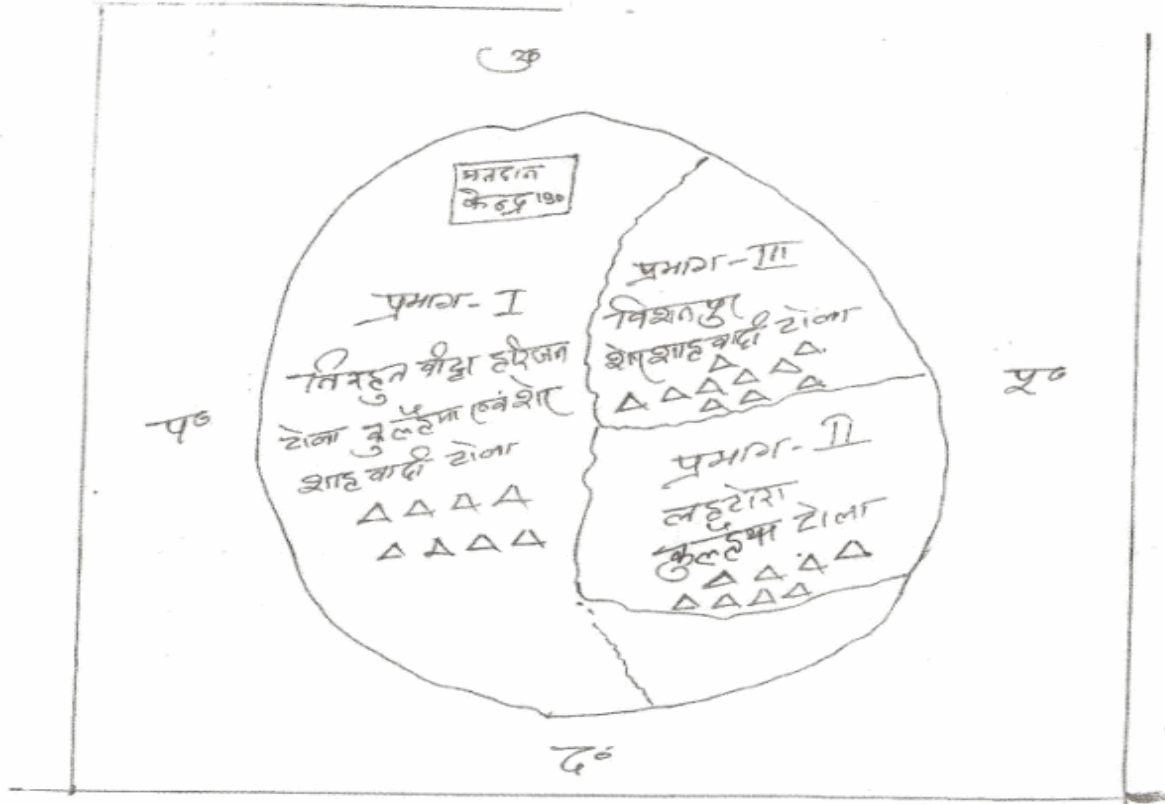 उ०
मतदान
केन्द्र 190
प्रभाग - I
तिरहुत बीट्टा हरिजन
टोला कुल्हैया एवं शेर
शाहवादी टोला
प्रभाग - III
विशनपुर
शेरशाहवादी टोला
प०
पू०
प्रभाग - II
लहटोरा
कुल्हैया टोला
द०